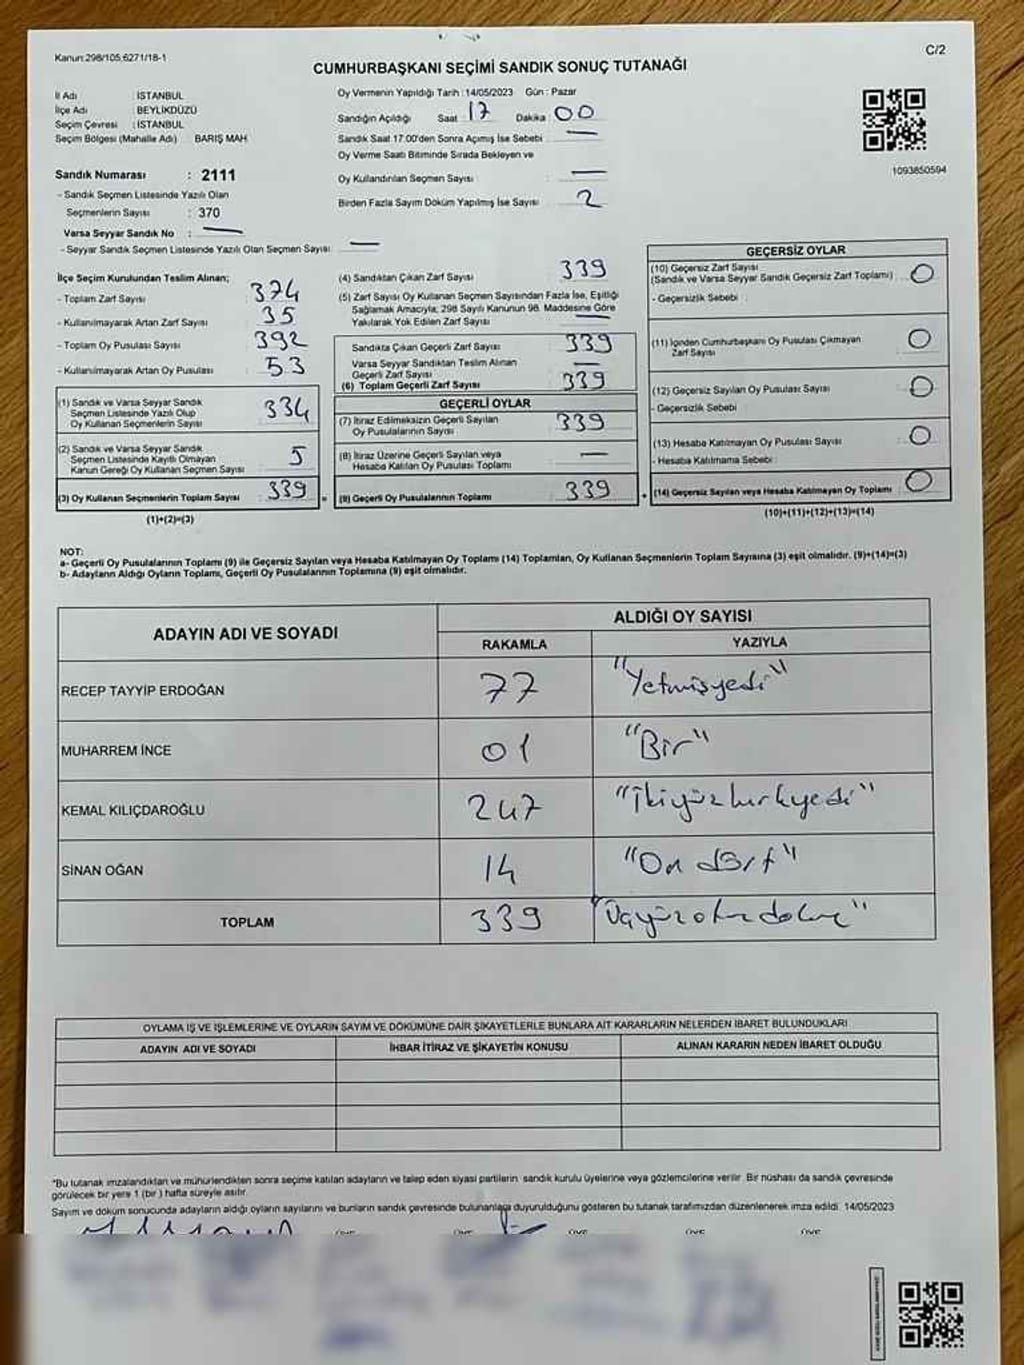 Kanun:298/105,6271/18-1
C/2
CUMHURBAŞKANI SEÇİMİ SANDIK SONUÇ TUTANAĞI
İl Adı : İSTANBUL
İlçe Adı : BEYLİKDÜZÜ
Seçim Çevresi : İSTANBUL
Seçim Bölgesi (Mahalle Adı) : BARIŞ MAH.
Sandık Numarası : 2111
- Sandık Seçmen Listesinde Yazılı Olan
Seçmenlerin Sayısı : 370
Varsa Seyyar Sandık No : —
- Seyyar Sandık Seçmen Listesinde Yazılı Olan Seçmen Sayısı: —
Oy Vermenin Yapıldığı Tarih :14/05/2023 Gün : Pazar
Sandığın Açıldığı Saat 17 Dakika 00
Sandık Saat 17.00'den Sonra Açımış İse Sebebi : —
Oy Verme Saati Bitiminde Sırada Bekleyen ve
Oy Kullandırılan Seçmen Sayısı : —
Birden Fazla Sayım Döküm Yapılmış İse Sayısı : 2
1093850594
İlçe Seçim Kurulundan Teslim Alınan;
- Toplam Zarf Sayısı : 374
- Kullanılmayarak Artan Zarf Sayısı : 35
- Toplam Oy Pusulası Sayısı : 392
- Kullanılmayarak Artan Oy Pusulası : 53
(1) Sandık ve Varsa Seyyar Sandık
Seçmen Listesinde Yazılı Olup
Oy Kullanan Seçmenlerin Sayısı : 334
(2) Sandık ve Varsa Seyyar Sandık
Seçmen Listesinde Kayıtlı Olmayan
Kanun Gereği Oy Kullanan Seçmen Sayısı : 5
(3) Oy Kullanan Seçmenlerin Toplam Sayısı : 339
(1)+(2)=(3)
(4) Sandıktan Çıkan Zarf Sayısı : 339
(5) Zarf Sayısı Oy Kullanan Seçmen Sayısından Fazla İse, Eşitliği
Sağlamak Amacıyla, 298 Sayılı Kanunun 98. Maddesine Göre
Yakılarak Yok Edilen Zarf Sayısı : —
Sandıkta Çıkan Geçerli Zarf Sayısı : 339
Varsa Seyyar Sandıktan Teslim Alınan
Geçerli Zarf Sayısı : —
(6) Toplam Geçerli Zarf Sayısı : 339
GEÇERLİ OYLAR
(7) İtiraz Edilmeksizin Geçerli Sayılan
Oy Pusulalarının Sayısı : 339
(8) İtiraz Üzerine Geçerli Sayılan veya
Hesaba Katılan Oy Pusulası Toplamı : —
(9) Geçerli Oy Pusulalarının Toplamı : 339
GEÇERSİZ OYLAR
(10) Geçersiz Zarf Sayısı
(Sandık ve Varsa Seyyar Sandık Geçersiz Zarf Toplamı) : 0
- Geçersizlik Sebebi :
(11) İçinden Cumhurbaşkanı Oy Pusulası Çıkmayan
Zarf Sayısı : 0
(12) Geçersiz Sayılan Oy Pusulası Sayısı : 0
- Geçersizlik Sebebi :
(13) Hesaba Katılmayan Oy Pusulası Sayısı : 0
- Hesaba Katılmama Sebebi :
(14) Geçersiz Sayılan veya Hesaba Katılmayan Oy Toplamı : 0
(10)+(11)+(12)+(13)=(14)
NOT:
a- Geçerli Oy Pusulalarının Toplamı (9) ile Geçersiz Sayılan veya Hesaba Katılmayan Oy Toplamı (14) Toplamları, Oy Kullanan Seçmenlerin Toplam Sayısına (3) eşit olmalıdır. (9)+(14)=(3)
b- Adayların Aldığı Oyların Toplamı, Geçerli Oy Pusulalarının Toplamına (9) eşit olmalıdır.
ADAYIN ADI VE SOYADI
ALDIĞI OY SAYISI
RAKAMLA YAZIYLA
RECEP TAYYİP ERDOĞAN 77 "Yetmişyedi"
MUHARREM İNCE 01 "Bir"
KEMAL KILIÇDAROĞLU 247 "İkiyüzkırkyedi"
SİNAN OĞAN 14 "On dört"
TOPLAM 339 "Üçyüzotuzdokuz"
OYLAMA İŞ VE İŞLEMLERİNE VE OYLARIN SAYIM VE DÖKÜMÜNE DAİR ŞİKAYETLERLE BUNLARA AİT KARARLARIN NELERDEN İBARET BULUNDUKLARI
ADAYIN ADI VE SOYADI
İHBAR İTİRAZ VE ŞİKAYETİN KONUSU
ALINAN KARARIN NEDEN İBARET OLDUĞU
*Bu tutanak imzalandıktan ve mühürlendikten sonra seçime katılan adayların ve talep eden siyasi partilerin sandık kurulu üyelerine veya gözlemcilerine verilir. Bir nüshası da sandık çevresinde
görülecek bir yere 1 (bir ) hafta süreyle asılır.
Sayım ve döküm sonucunda adayların aldığı oyların sayılarını ve bunların sandık çevresinde bulunanlara duyurulduğunu gösteren bu tutanak tarafımızdan düzenlenerek imza edildi. 14/05/2023